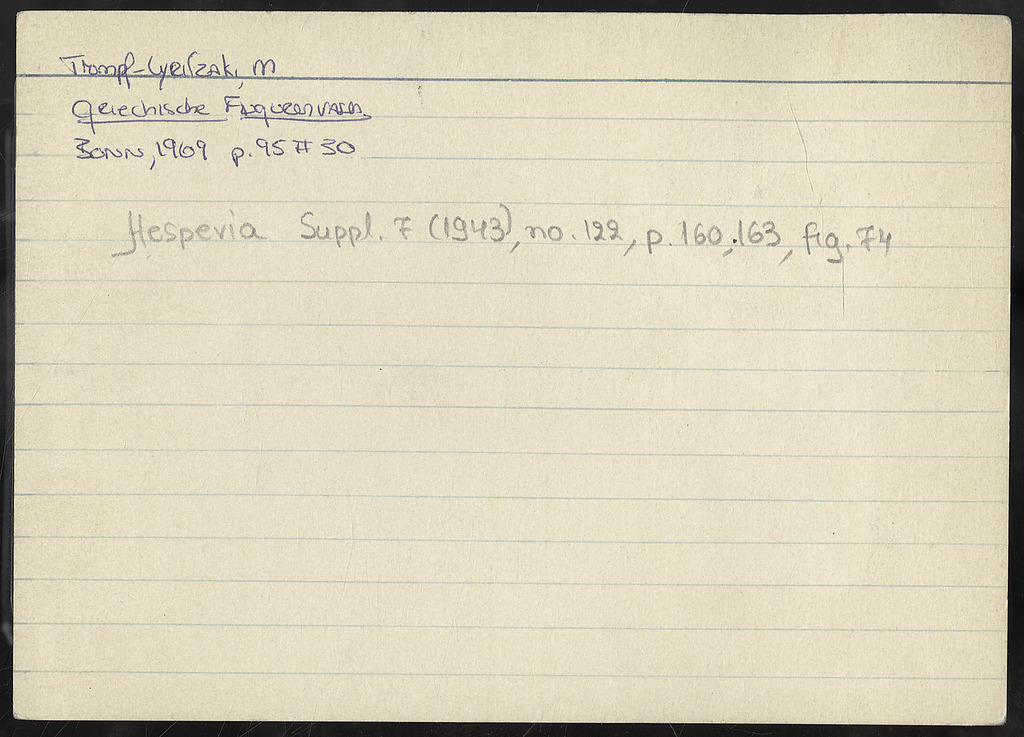 Trumpf-Lyritzaki, M
Griechische Figurenvasen
Bonn, 1969 p. 95 # 30
Hesperia Suppl. 7 (1943), no. 122, p. 160, 163, fig. 74